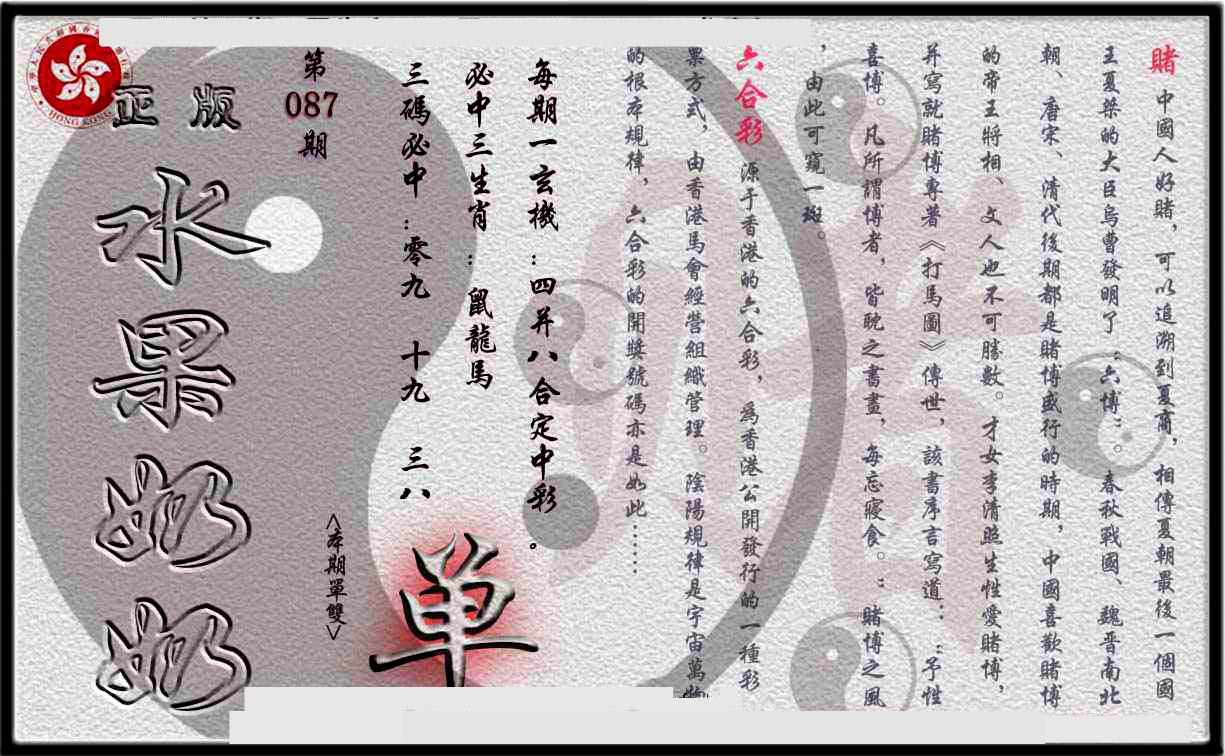 賭 中國人好賭，可以追溯到夏商，相傳夏朝最後一個國
王夏桀的大臣烏曹發明了:六博:。春秋戰國、魏晋南北
朝、唐宋、清代後期都是賭博盛行的時期，中國喜歡賭博
的帝王將相、文人也不可勝數。才女李清照生性愛賭博，
并寫就賭博專著《打馬圖》傳世，該書序言寫道：:予性
喜博。凡所謂博者，皆耽之書畫，每忘寢食。: 賭博之風
，由此可窺一斑。
六合彩 源于香港的六合彩，爲香港公開發行的一種彩
票方式，由香港馬會經營組織管理。陰陽規律是宇宙萬物
的根本規律，六合彩的開獎號碼亦是如此……
每期一玄機：四并八合定中彩。
必中三生肖：鼠龍馬
三碼必中：零九 十九 三八
單
<本期單雙>
第
087
期
正版
水果奶奶
HONG KONG